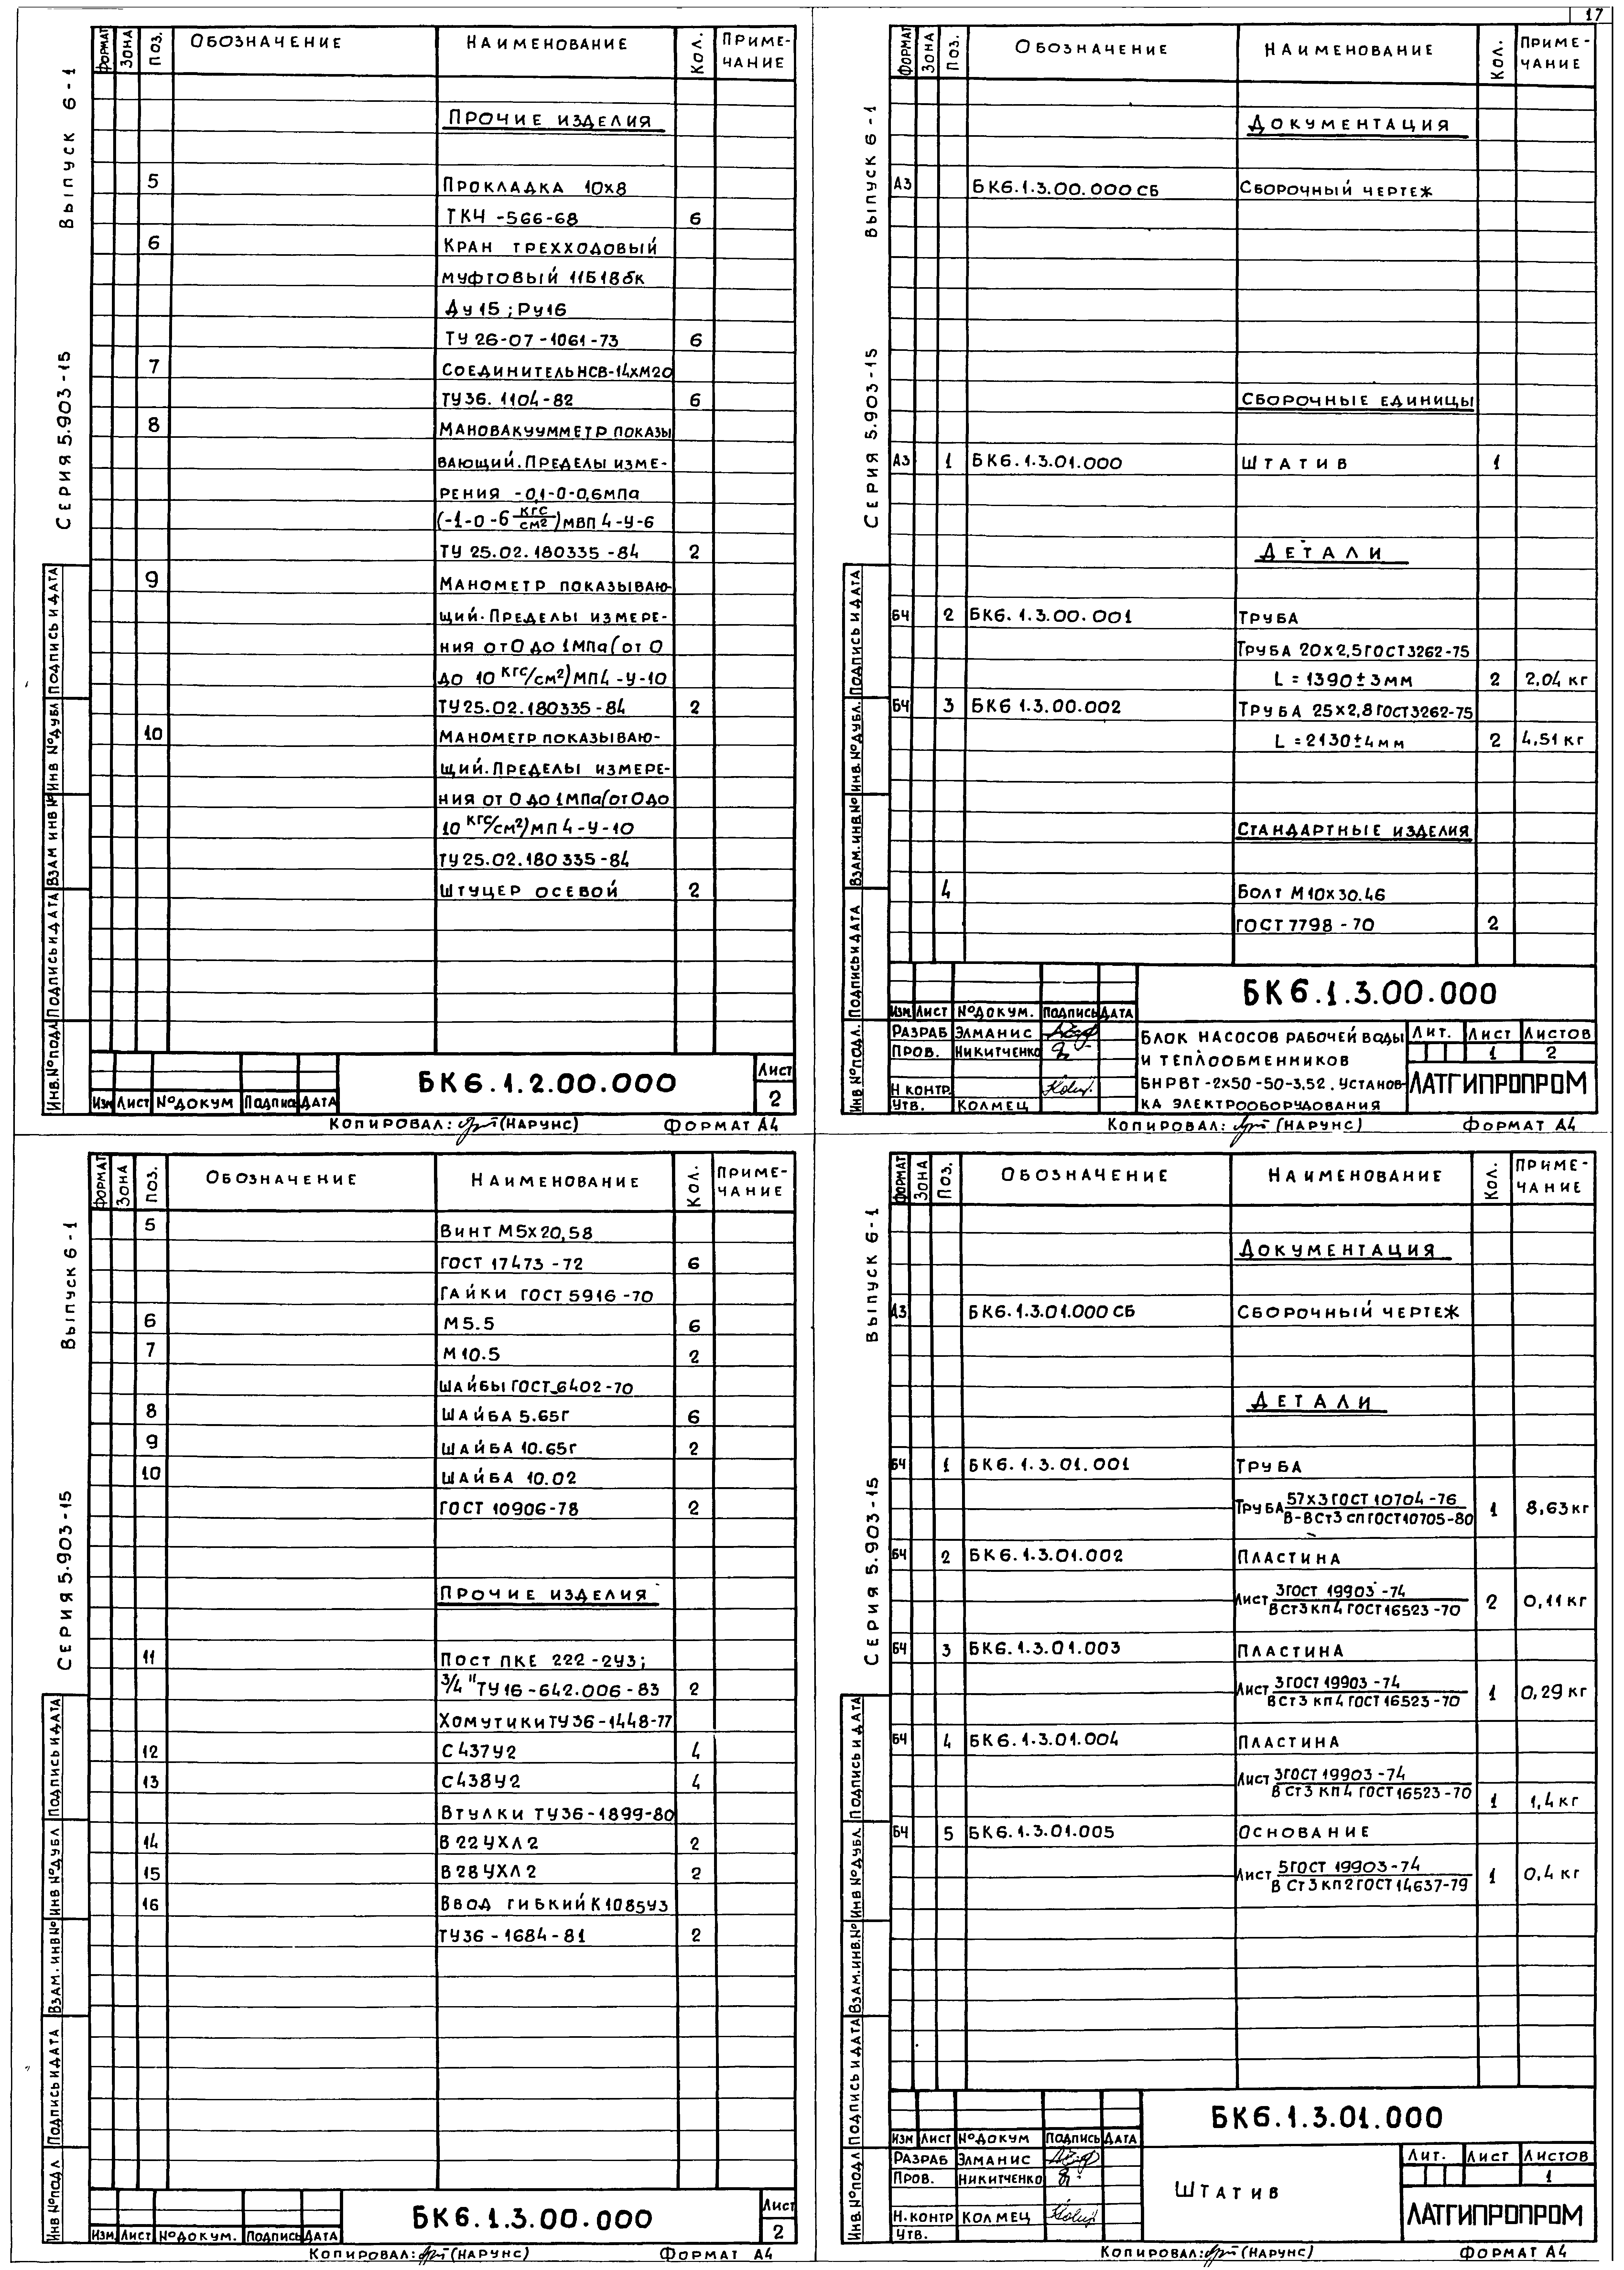 17
Выпуск 6-1
Серия 5.903-15
Формат Зона Поз. Обозначение Наименование Кол. Примечание
Прочие изделия
5 Прокладка 10х8
ТКЧ-566-68 6
6 Кран трехходовый
муфтовый 11Б18бк
Ду15; Ру16
ТУ 26-07-1061-73 6
7 Соединитель НСВ-14хМ20
ТУ36.1104-82 6
8 Мановакуумметр показы
вающий. Пределы изме-
рения -0,1-0-0,6МПа
(-1-0-6 кгс/см²) МВП4-У-6
ТУ 25.02.180335-84 2
9 Манометр показываю-
щий. Пределы измере-
ния от 0 до 1МПа (от 0
до 10 кгс/см²) МП4-У-10
ТУ25.02.180335-84 2
10 Манометр показываю-
щий. Пределы измере-
ния от 0 до 1МПа (от 0 до
10 кгс/см²) МП4-У-10
ТУ25.02.180335-84
Штуцер осевой 2
Инв.№подл. Подпись и дата Взам инв № Инв №дубл Подпись и дата
Изм Лист №докум Подпись Дата
БК6.1.2.00.000
Лист 2
Копировал: (Нарунс) Формат А4
Выпуск 6-1
Серия 5.903-15
Формат Зона Поз. Обозначение Наименование Кол. Примечание
Документация
А3 БК6.1.3.00.000 СБ Сборочный чертеж
Сборочные единицы
А3 1 БК6.1.3.01.000 Штатив 1
Детали
БЧ 2 БК6.1.3.00.001 Труба
Труба 20х2,5 ГОСТ 3262-75
L = 1390±3мм 2 2,04 кг
БЧ 3 БК6 1.3.00.002 Труба 25х2,8 ГОСТ 3262-75
L = 2130±4мм 2 4,51 кг
Стандартные изделия
4 Болт М10х30.46
ГОСТ 7798-70 2
Инв.№подл. Подпись и дата Взам.инв.№ Инв.№дубл. Подпись и дата
Изм Лист №докум. Подпись Дата
Разраб Элманис
Пров. Никитченко
Н контр.
Утв. Колмец
БК6.1.3.00.000
Блок насосов рабочей воды
и теплообменников
БНРВТ-2х50-50-3,52. Установ-
ка электрооборудования
Лит. Лист Листов
1 2
Латгипропром
Копировал: (Нарунс) Формат А4
Выпуск 6-1
Серия 5.903-15
Формат Зона Поз. Обозначение Наименование Кол. Примечание
5 Винт М5х20,58
ГОСТ 17473-72 6
Гайки ГОСТ 5916-70
6 М5.5 6
7 М10.5 2
Шайбы ГОСТ 6402-70
8 Шайба 5.65Г 6
9 Шайба 10.65Г 2
10 Шайба 10.02
ГОСТ 10906-78 2
Прочие изделия
11 Пост ПКЕ 222-2У3;
3/4" ТУ16-642.006-83 2
Хомутики ТУ36-1448-77
12 С437У2 4
13 С438У2 4
Втулки ТУ36-1899-80
14 В22УХЛ2 2
15 В28УХЛ2 2
16 Ввод гибкий К1085У3
ТУ36-1684-81 2
Инв №подл Подпись и дата Взам.инв № Инв №дубл Подпись и дата
Изм Лист №докум. Подпись Дата
БК6.1.3.00.000
Лист 2
Копировал: (Нарунс) Формат А4
Выпуск 6-1
Серия 5.903-15
Формат Зона Поз. Обозначение Наименование Кол. Примечание
Документация
А3 БК6.1.3.01.000 СБ Сборочный чертеж
Детали
БЧ 1 БК6.1.3.01.001 Труба
Труба 57х3 ГОСТ 10704-76 / В-ВСт3 сп ГОСТ 10705-80 1 8,63кг
БЧ 2 БК6.1.3.01.002 Пластина
Лист 3 ГОСТ 19903-74 / ВСт3 кп4 ГОСТ 16523-70 2 0,11 кг
БЧ 3 БК6.1.3.01.003 Пластина
Лист 3 ГОСТ 19903-74 / ВСт3 кп4 ГОСТ 16523-70 1 0,29 кг
БЧ 4 БК6.1.3.01.004 Пластина
Лист 3 ГОСТ 19903-74 / ВСт3 кп4 ГОСТ 16523-70 1 1,4 кг
БЧ 5 БК6.1.3.01.005 Основание
Лист 5 ГОСТ 19903-74 / ВСт3 кп2 ГОСТ 14637-79 1 0,4 кг
Инв.№подл Подпись и дата Взам.инв.№ Инв №дубл. Подпись и дата
Изм Лист №докум Подпись Дата
Разраб Элманис
Пров. Никитченко
Н.контр Колмец
Утв.
БК6.1.3.01.000
Штатив
Лит. Лист Листов
1
Латгипропром
Копировал: (Нарунс) Формат А4